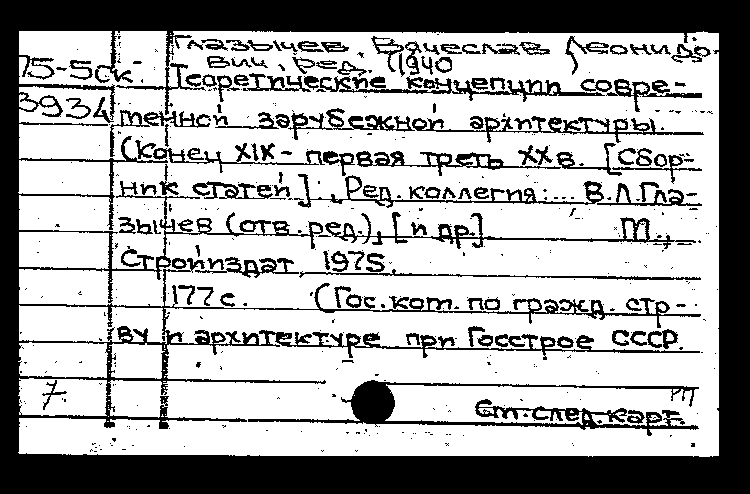 Глазычев, Вячеслав Леонидо-
вич, ред. (1940
75-5ск. Теоретические концепции совре-
3934 менной зарубежной архитектуры.
(Конец XIX - первая треть XX в. [Сбор-
ник статей]. Ред. коллегия: ... В.Л. Гла-
зычев (отв. ред.), [и др.] М.,
Стройиздат, 1975.
177 с. (Гос. ком. по гражд. стр-
ву и архитектуре при Госстрое СССР.
7 РП
См. след. карт.